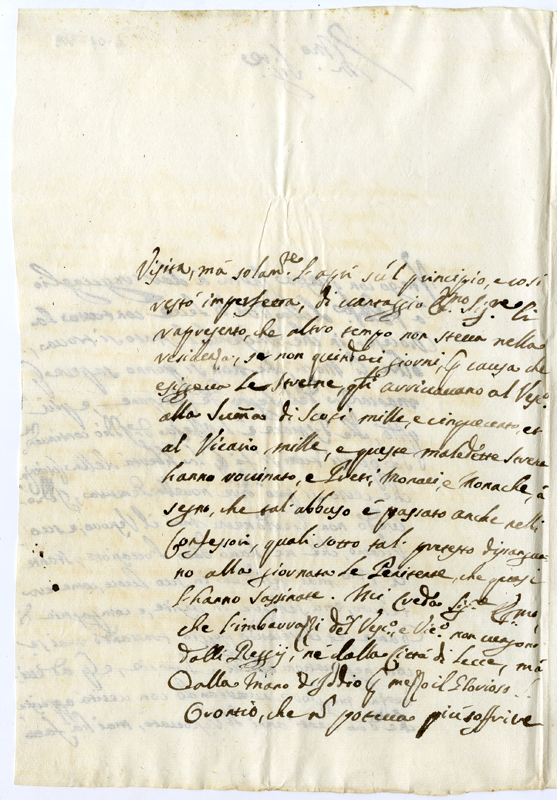 Visita, mà solam.te l'aprì sù'l principio, e così
restò imperfetta, di vantaggio Ill.mo Sig.re li
rapresento, che altro tempo non steva nella
residenza, se non quindeci giorni, p causa che
esiggeva le strenne, gli arrivavano al Vesc.o
alla summa di Scuti mille, e cinquecento, et
al Vicario mille, e queste maledette strene
hanno rovinato, e Preti, Monaci, e Monache, à
segno, che tal'abbuso è passato anche nelli
Confessori, quali sotto tal pretesto disangua
no alla giornata le Penitente, che quasi
l'hanno sassinate. Mi creda Sig.re Ill.mo,
che l'imbarrazzi del Vesc.o, e Vic.o non vengono
dalli Reggij, nè dalla Città di Lecce, mà
Dalla mano d'Iddio p mezzo il Glorioso S.
Orontio, che nõ poteva più soffrire